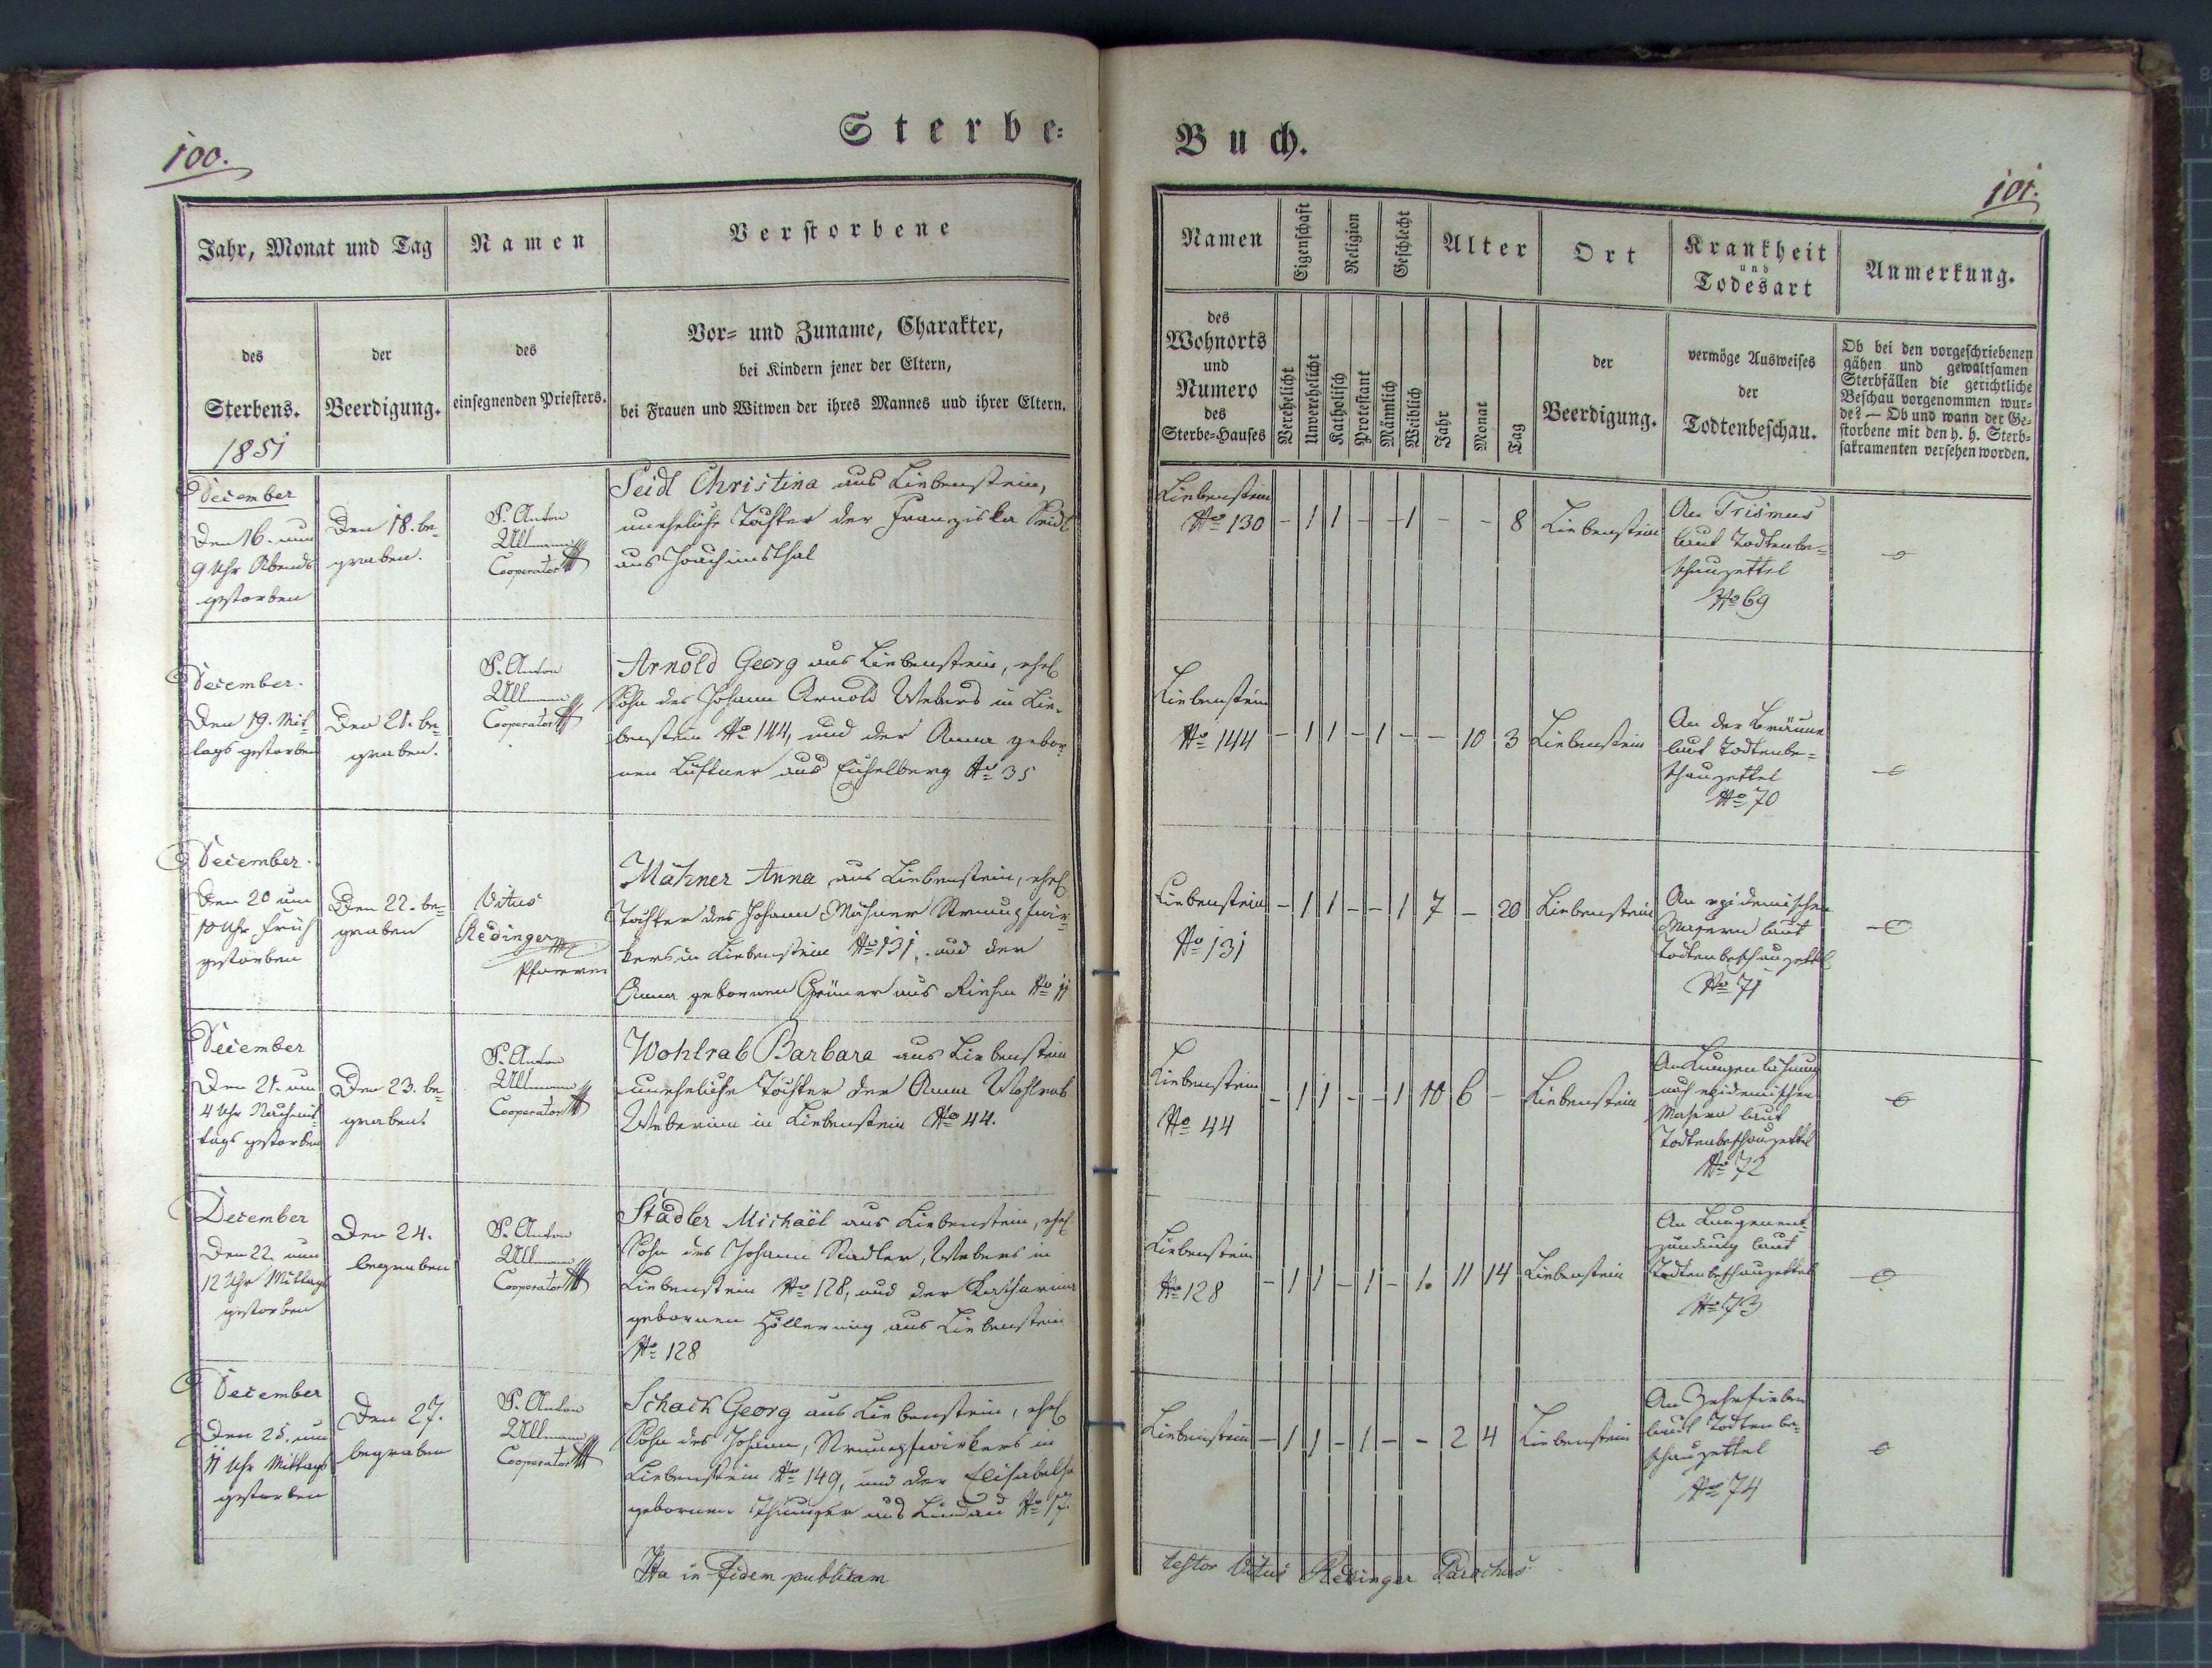 100.
Sterbe-
Jahr, Monat und Tag
Namen
Verstorbene
des
Sterbens.
der
Beerdigung.
des
einsegnenden Priesters.
Vor- und Zuname, Charakter,
bei Kindern jener der Eltern,
bei Frauen und Witwen der ihres Mannes und ihrer Eltern.
1851
December
Den 16. um
9 Uhr Abends
gestorben
Den 18. be-
graben.
P. Anton
Ullmann
Cooperator
Seidl Christina aus Liebenstein,
uneheliche Tochter der Franziska Seidl
aus Joachimsthal
December.
Den 19. Mit-
tags gestorben
Den 21. be-
graben.
P. Anton
Ullmann
Cooperator
Arnold Georg aus Liebenstein, ehel.
Sohn des Johann Arnold Webers in Lie-
benstein No 144, und der Anna gebor-
nen Lustner aus Eichelberg No 35
December.
Den 20 um
10 Uhr früh
gestorben
Den 22. be-
graben
Vitus
Redinger
Pfarrer
Mähner Anna aus Liebenstein, ehel.
Tochter des Johann Mähner Strumpfwir-
kers in Liebenstein No 131, und der
Anna gebornen Grüner aus Riehm No 11
December
Den 21. um
4 Uhr Nachmit-
tags gestorben
Den 23. be-
graben.
P. Anton
Ullmann
Cooperator
Wohlrab Barbara aus Liebenstein
uneheliche Tochter der Anna Wohlrab
Weberinn in Liebenstein No 44.
December
Den 22. um
12 Uhr Mittags
gestorben
Den 24.
begraben
P. Anton
Ullmann
Cooperator
Stadler Michaël aus Liebenstein, ehel.
Sohn des Johann Stadler, Webers in
Liebenstein No 128, und der Katharina
gebornen Höllering aus Liebenstein
No 128
December
Den 25. um
11 Uhr Mittags
gestorben
Den 27.
begraben
P. Anton
Ullmann
Cooperator
Schack Georg aus Liebenstein, ehel.
Sohn des Johann, Strumpfwirkers in
Liebenstein No 149, und der Elisabetha
gebornen aus Lindau No 17.
Ita in fidem publicam
Buch.
101.
Namen
Eigenschaft
Religion
Geschlecht
Alter
Ort
Krankheit
und
Todesart
Anmerkung.
des
Wohnorts
und
Numero
des
Sterbe-Hauses
Verehelicht
Unverehelicht
Katholisch
Protestant
Männlich
Weiblich
Jahr
Monat
Tag
der
Beerdigung.
vermöge Ausweises
der
Todtenbeschau.
Ob bei den vorgeschriebenen
gähen und gewaltsamen
Sterbfällen die gerichtliche
Beschau vorgenommen wur-
de? — Ob und wann der Ge-
storbene mit den h. h. Sterb-
sakramenten versehen worden.
Liebenstein
No 130 - 1 1 - - 1 - - 8 Liebenstein
An Trismus
laut Todtenbe-
schauzettel
No 69
Liebenstein
No 144 - 1 1 - 1 - - 10 3 Liebenstein
An der Bräune
laut Todtenbe-
schauzettel
No 70
Liebenstein - 1 1 - - 1 7 - 20 Liebenstein
No 131
An epidemischen
Masern laut
Todtenbeschauzettel
No 71
Liebenstein - 1 1 - - 1 10 6 - Liebenstein
No 44
An Lungenlähmung
nach epidemischen
Masern laut
Todtenbeschauzettel
No 72
Liebenstein
No 128 - 1 1 - 1 - 1. 11 14 Liebenstein
An Lungenent-
zündung laut
Todtenbeschauzettel
No 73
Liebenstein - 1 1 - 1 - - 2 4 Liebenstein
An Zehrfieber
laut Todtenbe-
schauzettel
No 74
testor Vitus Redinger Parochus